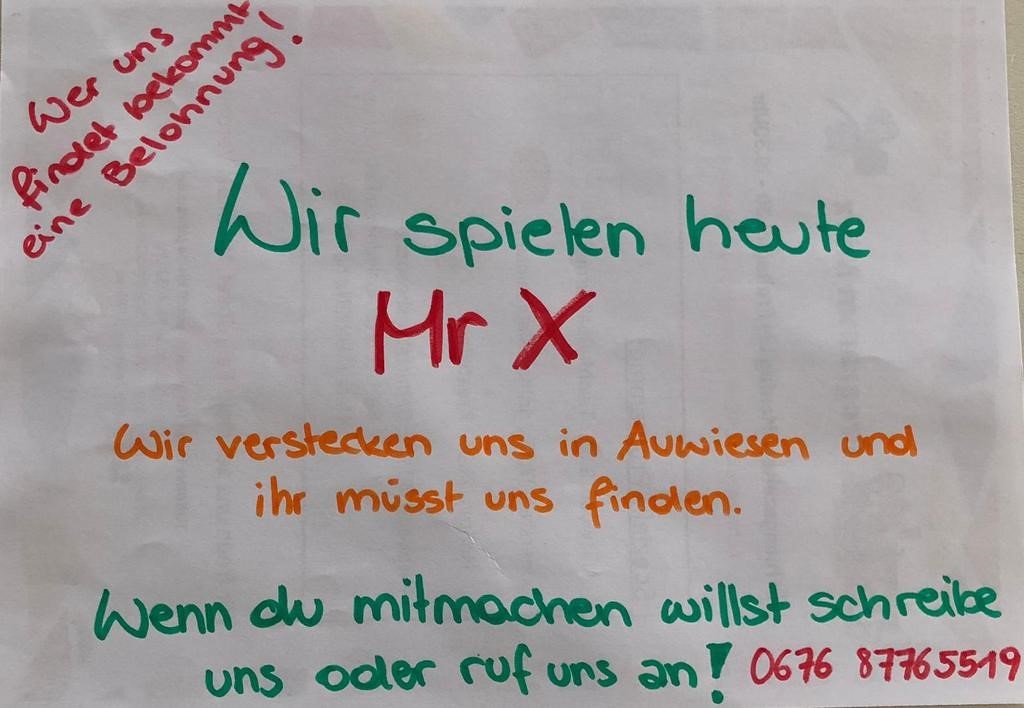 Wer uns
findet bekommt
eine Belohnung!
Wir spielen heute
Mr X
Wir verstecken uns in Auwiesen und
ihr müsst uns finden.
Wenn du mitmachen willst schreibe
uns oder ruf uns an! 0676 87765519